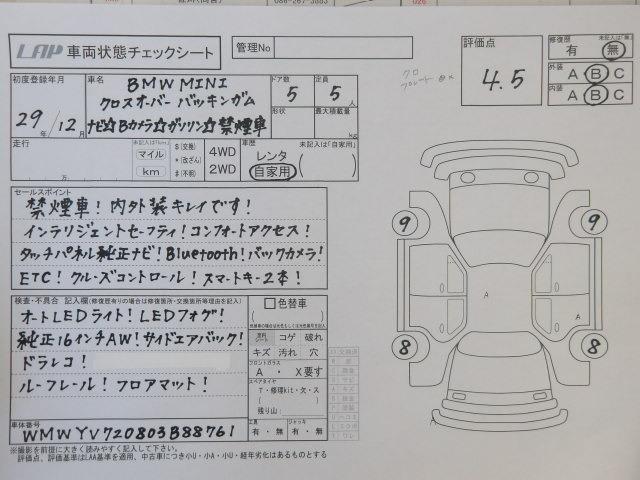 LAP 車両状態チェックシート
管理No
評価点
4.5
修復歴 未記入は「無」
有 無
外装 A B C
内装 A B C
初度登録年月
29年/12月
車名
BMW MINI
クロスオーバー バッキンガム
ナビ☆Bカメラ☆ガソリン☆禁煙車
ドア数 5
定員 5人
形状
最大積載量 kg
走行
万
未記入は「km」
マイル
km
$(交換)
*(改ざん)
#(不明)
4WD
2WD
車歴 未記入は「自家用」
レンタ
自家用
セールスポイント
禁煙車!内外装キレイです!
インテリジェントセーフティ!コンフォートアクセス!
タッチパネル純正ナビ!Bluetooth!バックカメラ!
ETC!クルーズコントロール!スマートキー2本!
検査・不具合 記入欄(修復歴有りの場合は修復箇所・交換箇所等理由を記入)
オートLEDライト!LEDフォグ!
純正16インチAW!サイドエアバッグ!
ドラレコ!
ルーフレール!フロアマット!
色替車
コゲ 破れ
キズ 汚れ 穴
フロントガラス
A・X要す
スペアタイヤ
T・修理kit・欠・ス
残り山
工具 有・無
ジャッキ 有・無
車体番号
WMWYV720803B88761
※撮影を前提に大きく読みやすく記入して下さい。
評価点、評価基準はLAA基準を適用、中古車につき小U・小A・小U・経年劣化はあるものとする
9
9
8
8
A
A
A